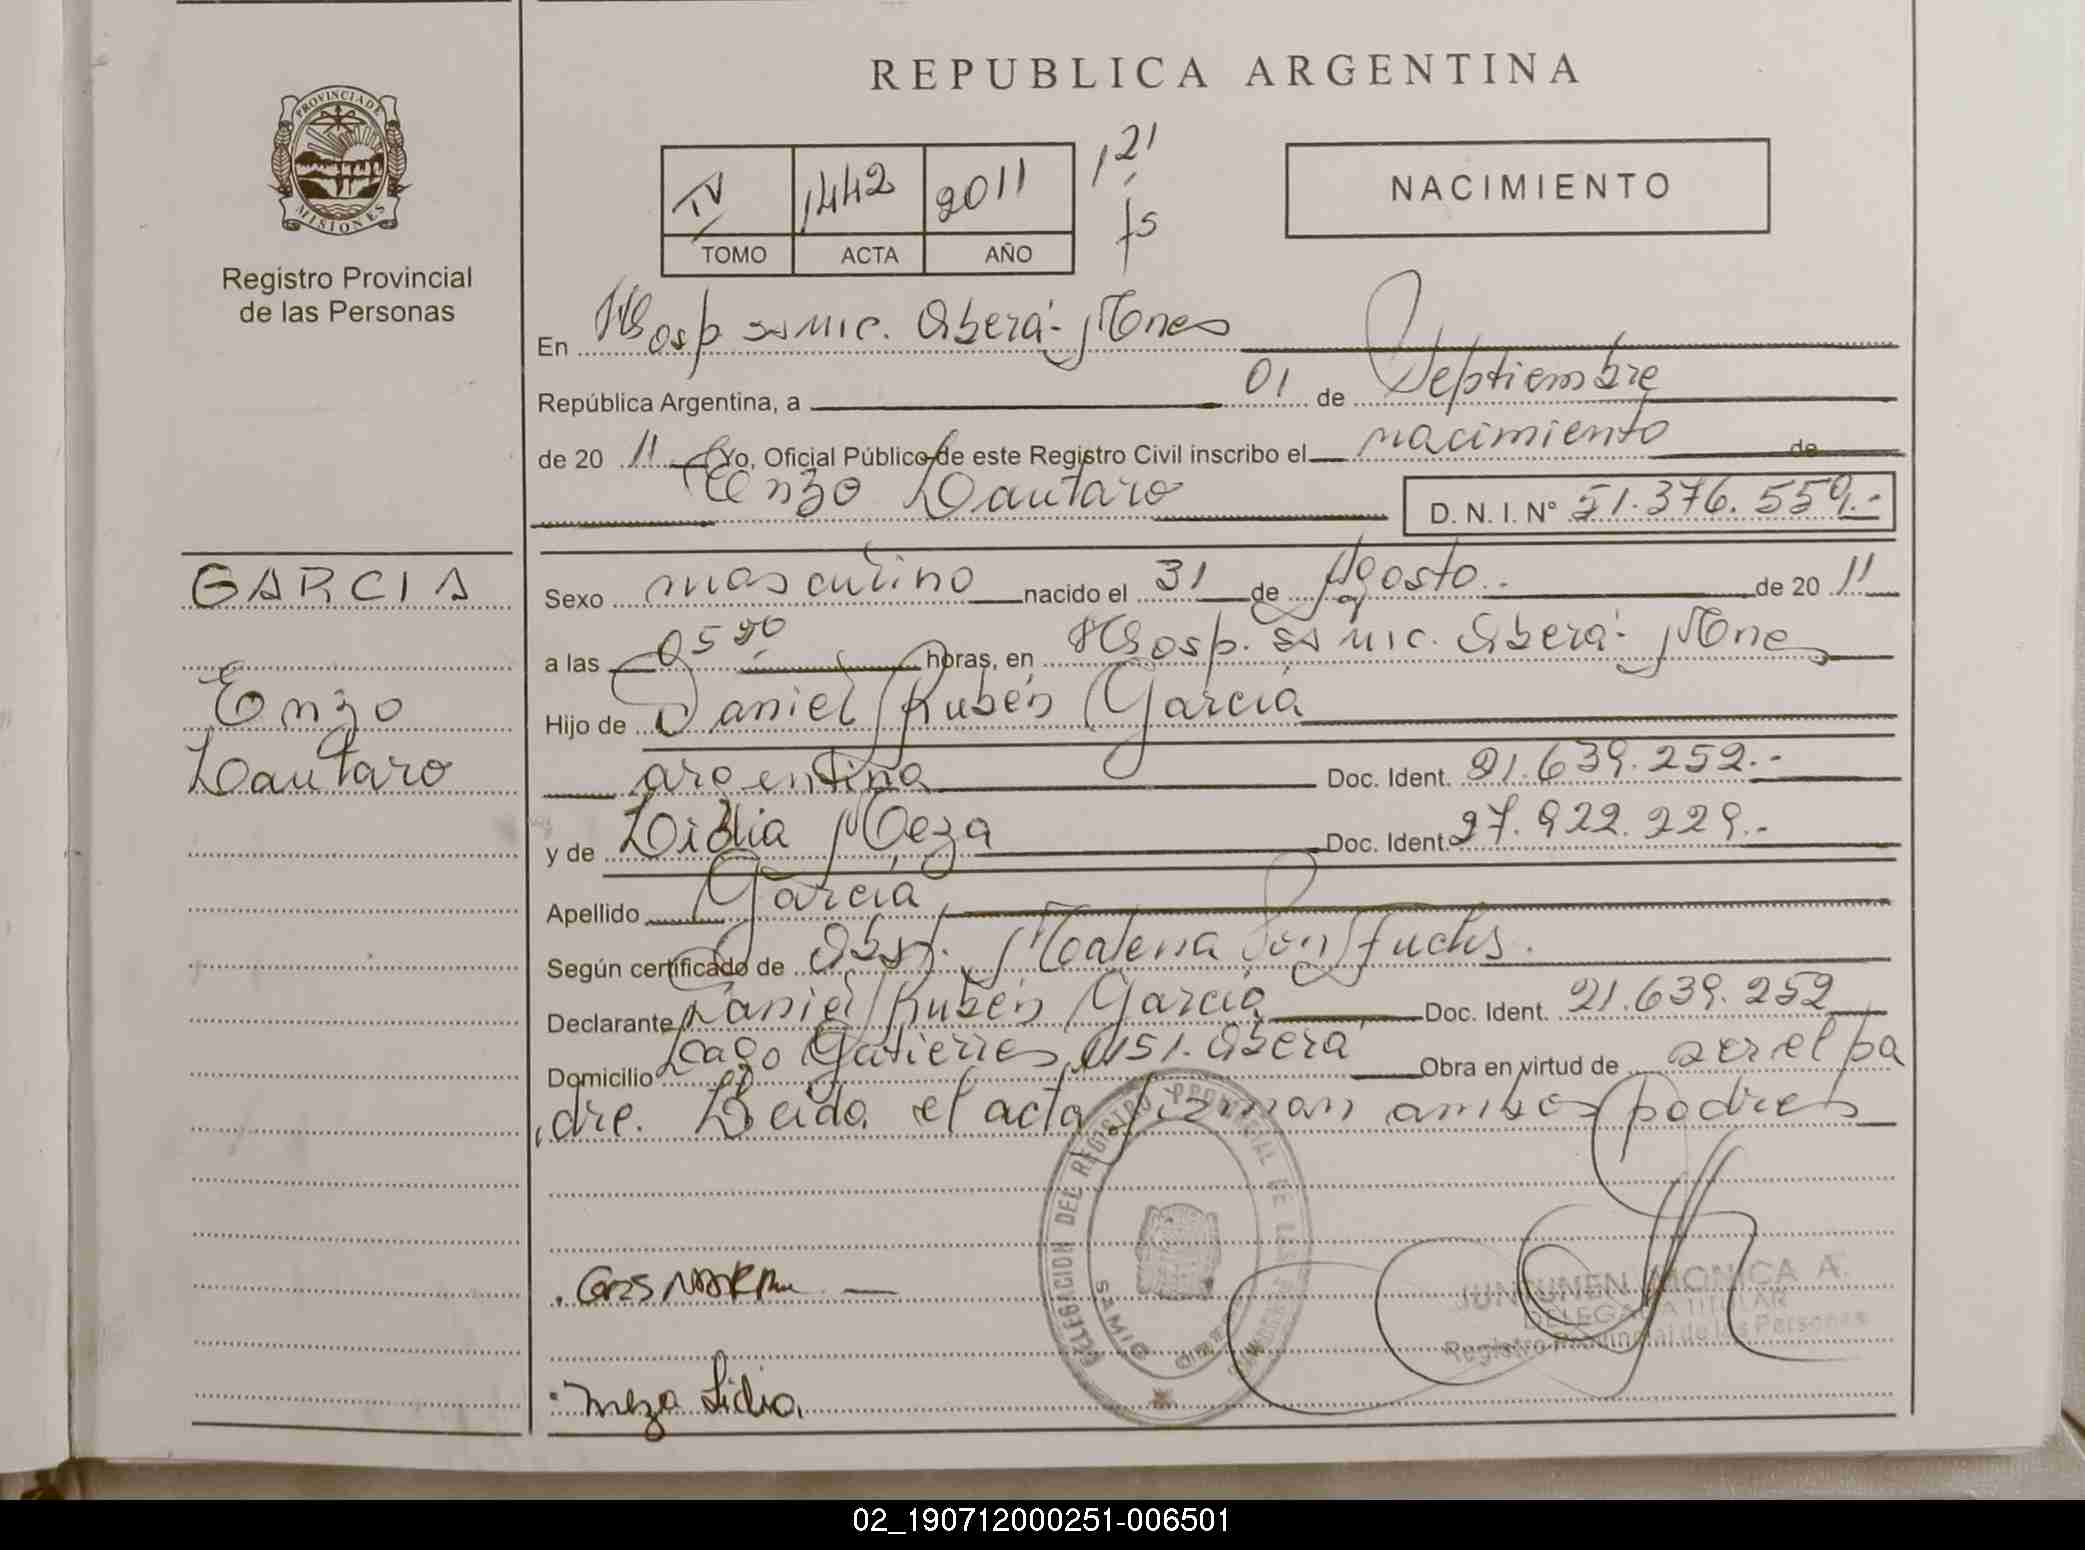 REPUBLICA ARGENTINA
PROVINCIA DE
MISIONES
Registro Provincial
de las Personas
IV 1442 2011
TOMO ACTA AÑO
121
fs
NACIMIENTO
En Hosp SAMIC. Oberá- Mnes
República Argentina, a 01 de Septiembre
de 20 11 Yo, Oficial Público de este Registro Civil inscribo el nacimiento de
Enzo Lautaro D. N. I. Nº 51.376.559.-
GARCIA
Enzo
Lautaro
Sexo masculino nacido el 31 de Agosto.- de 20 11
a las 05 horas, en Hosp. SAMIC. Oberá- Mnes
Hijo de Daniel Rubén García
argentina Doc. Ident. 21.639.252.-
y de Lidia Meza Doc. Ident. 27.922.229.-
Apellido García
Según certificado de Obst. Malena Fuchs.
Declarante Daniel Rubén García Doc. Ident. 21.639.252
Domicilio Lago Gutierres Oberá Obra en virtud de ser el pa
dre. Leída el acta firman ambos padres
DELEGACION DEL REGISTRO PROVINCIAL DE LAS PERSONAS
SAMIC
JUNGUNEN MONICA A.
DELEGADA TITULAR
Registro Provincial de las Personas
Meza Lidia
02_190712000251-006501